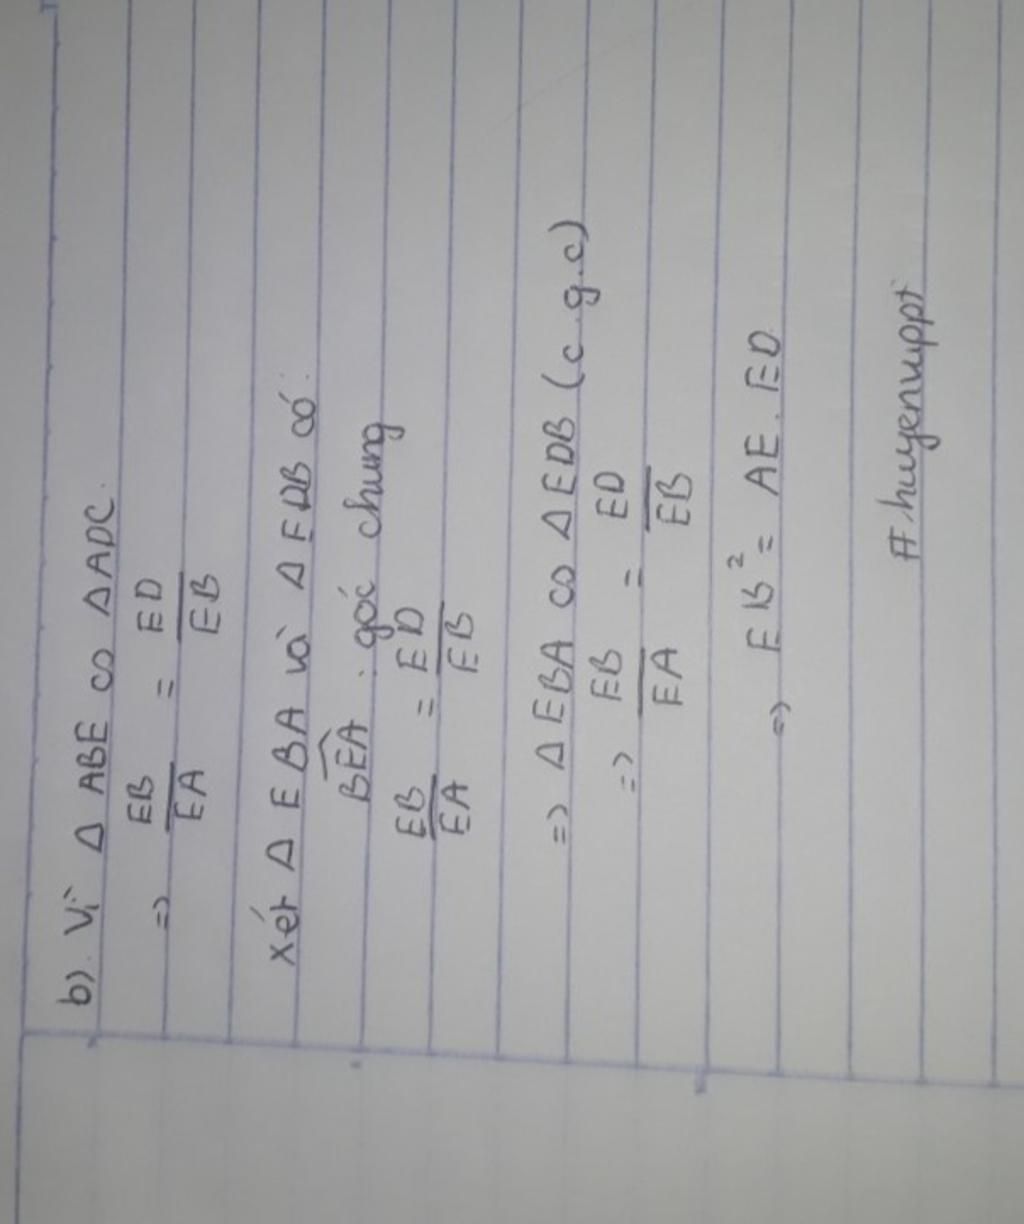 b). Vì Δ ABE ∽ ΔADC.
=> EB/EA = ED/EB
xét Δ EBA và Δ EDB có:
BEA : góc chung
EB/EA = ED/EB
=> Δ EBA ∽ Δ EDB (c.g.c)
=> EB/EA = ED/EB
=> EB² = AE.ED
# huyenuppt